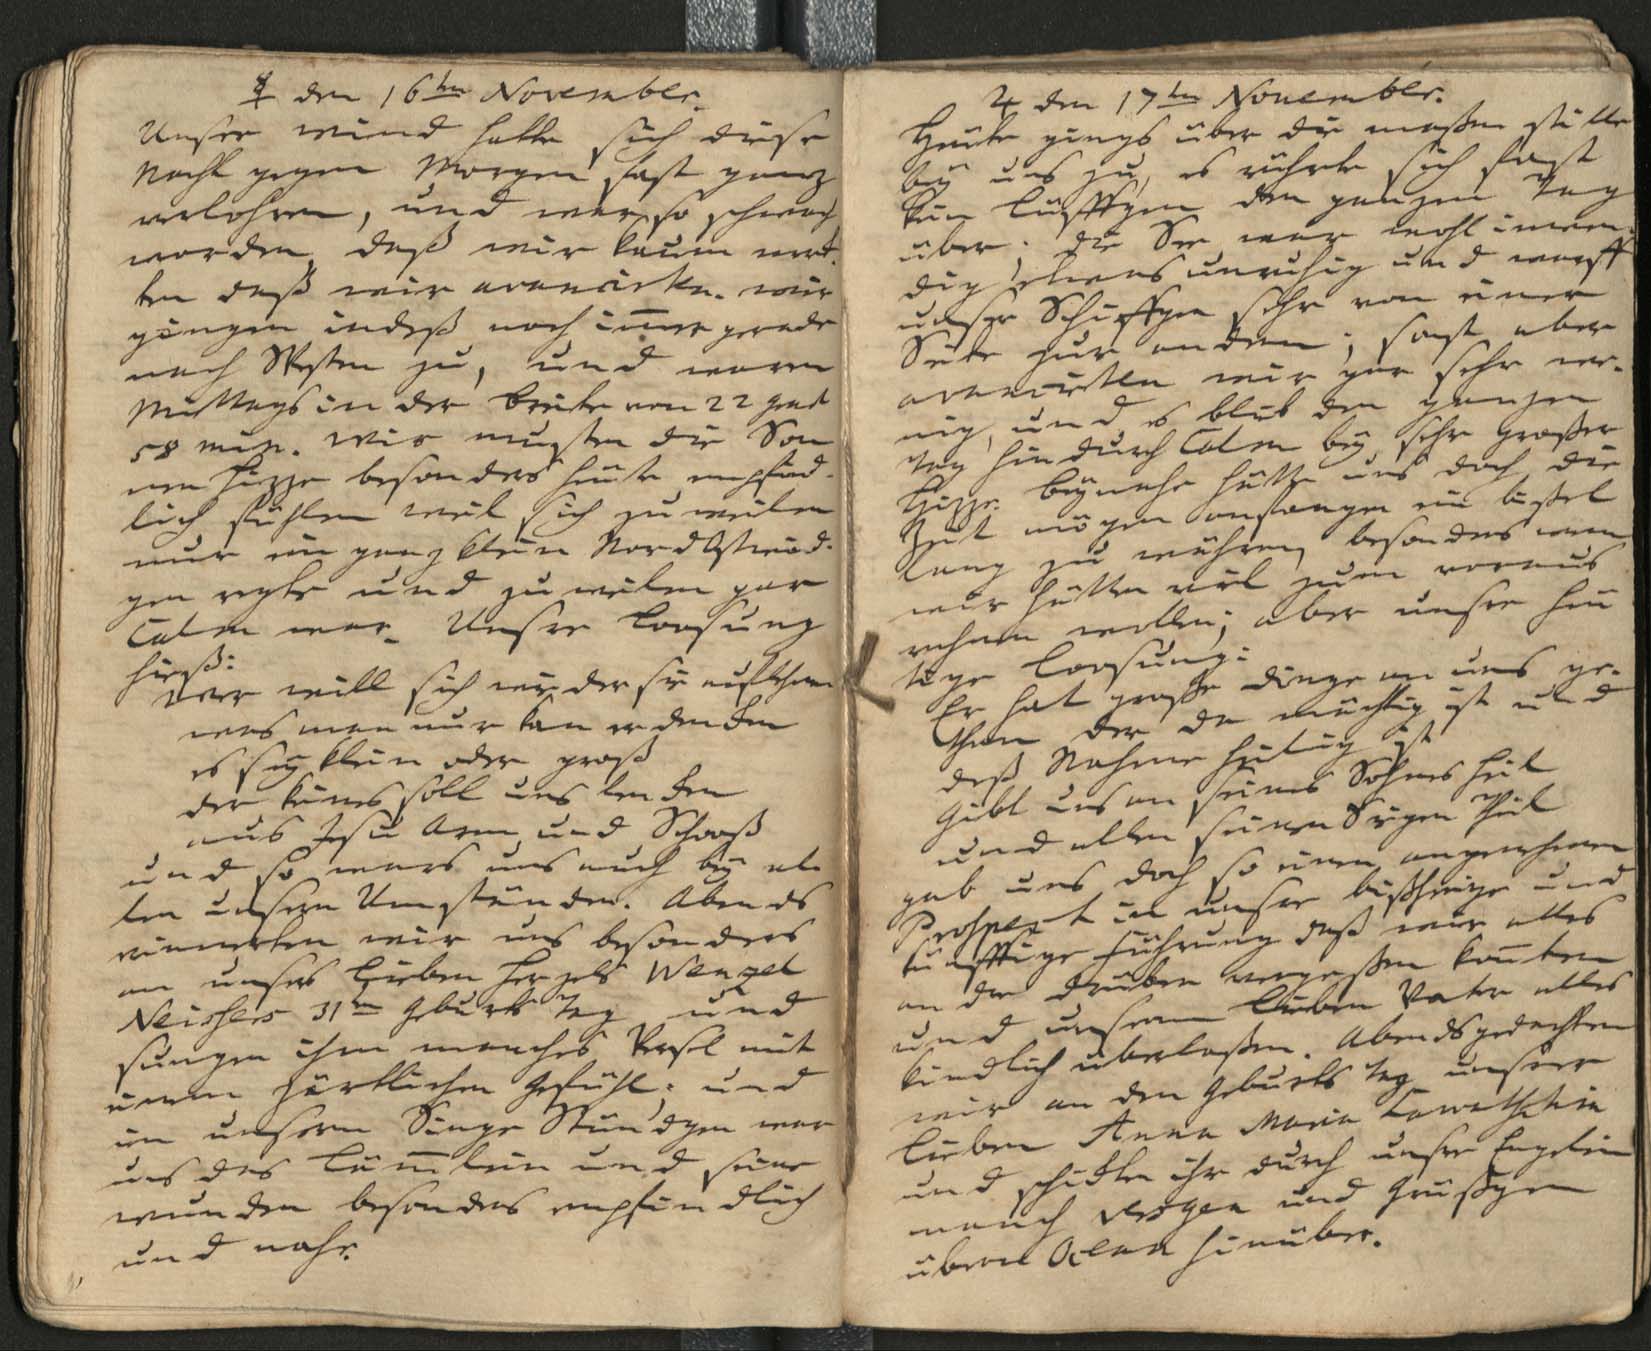 ☿ den 16ten November.
Unser wind hatte sich diese
Nacht gegen Morgen fast ganz
verlohren, und war so schwach
worden, daß wir kaum merck-
ten daß wir avancirten. wir
gingen indeß noch immer gerade
nach Westen zu, und waren
Mittags in der breite von 22 grad
58 min. Wir mußten die Son
nen Hizze besonders heute empfind-
lich fühlen weil sich zuweilen
nur ein ganz klein Nord Ostwind-
gen regte und zuweilen gar
Calm war. Unsre Loosung
hieß:
Wer will sich wieder sie aufthun
was man nur kan erdencken
es sey klein oder groß
der keines soll uns lencken
aus Jesu Arm und Schooß
und so wars uns auch bey al-
len unsern Umständen. Abends
erinnerten wir uns besonders
an unsers lieben Herzels Wenzel
Neissers 31ten Geburts Tag und
sungen ihm manches Versel mit
einem zärtlichen Gefühl, und
in unserm Singe Stündgen war
uns das Lämmlein und seine
wunden besonders empfindlich
und nahe.
♃ den 17ten November.
Heute gings über die maßen stille
bey uns zu, es rührte sich fast
kein Lüfftgen den ganzen Tag
über; die See war wohl inwen-
dig etwas unruhig und warff
unser Schiffgen sehr von einer
Seite zur andern; sonst aber
avancirten wir gar sehr we-
nig, und es blieb den ganzen
Tag hindurch Calm bey sehr großer
Hizze. beynahe hätte uns doch die
Zeit mögen anfangen ein bißel
lang zu währen, besonders wenn
wir hätten viel zum voraus
rechnen wollen; aber unsre heu
tige Loosung:
Er hat große dinge an uns ge-
than der da mächtig ist und
deß Nahme heilig ist
Gibt uns an seines Sohnes Heil
und allen seinen Seegen Theil
gab uns doch so einen angenehmen
Prospect in unsre bißherige und
künfftige Führung daß wir alles
andre drüber vergeßen konnten
und unserm lieben Vater alles
kindlich überlaßen. Abends gedachten
wir an den Geburts Tag unsrer
lieben Anna Maria Lawatschkin
und schickten ihr durch unsre Engelein
manch Versgen und Grüßgen
übern Ocean hinüber.